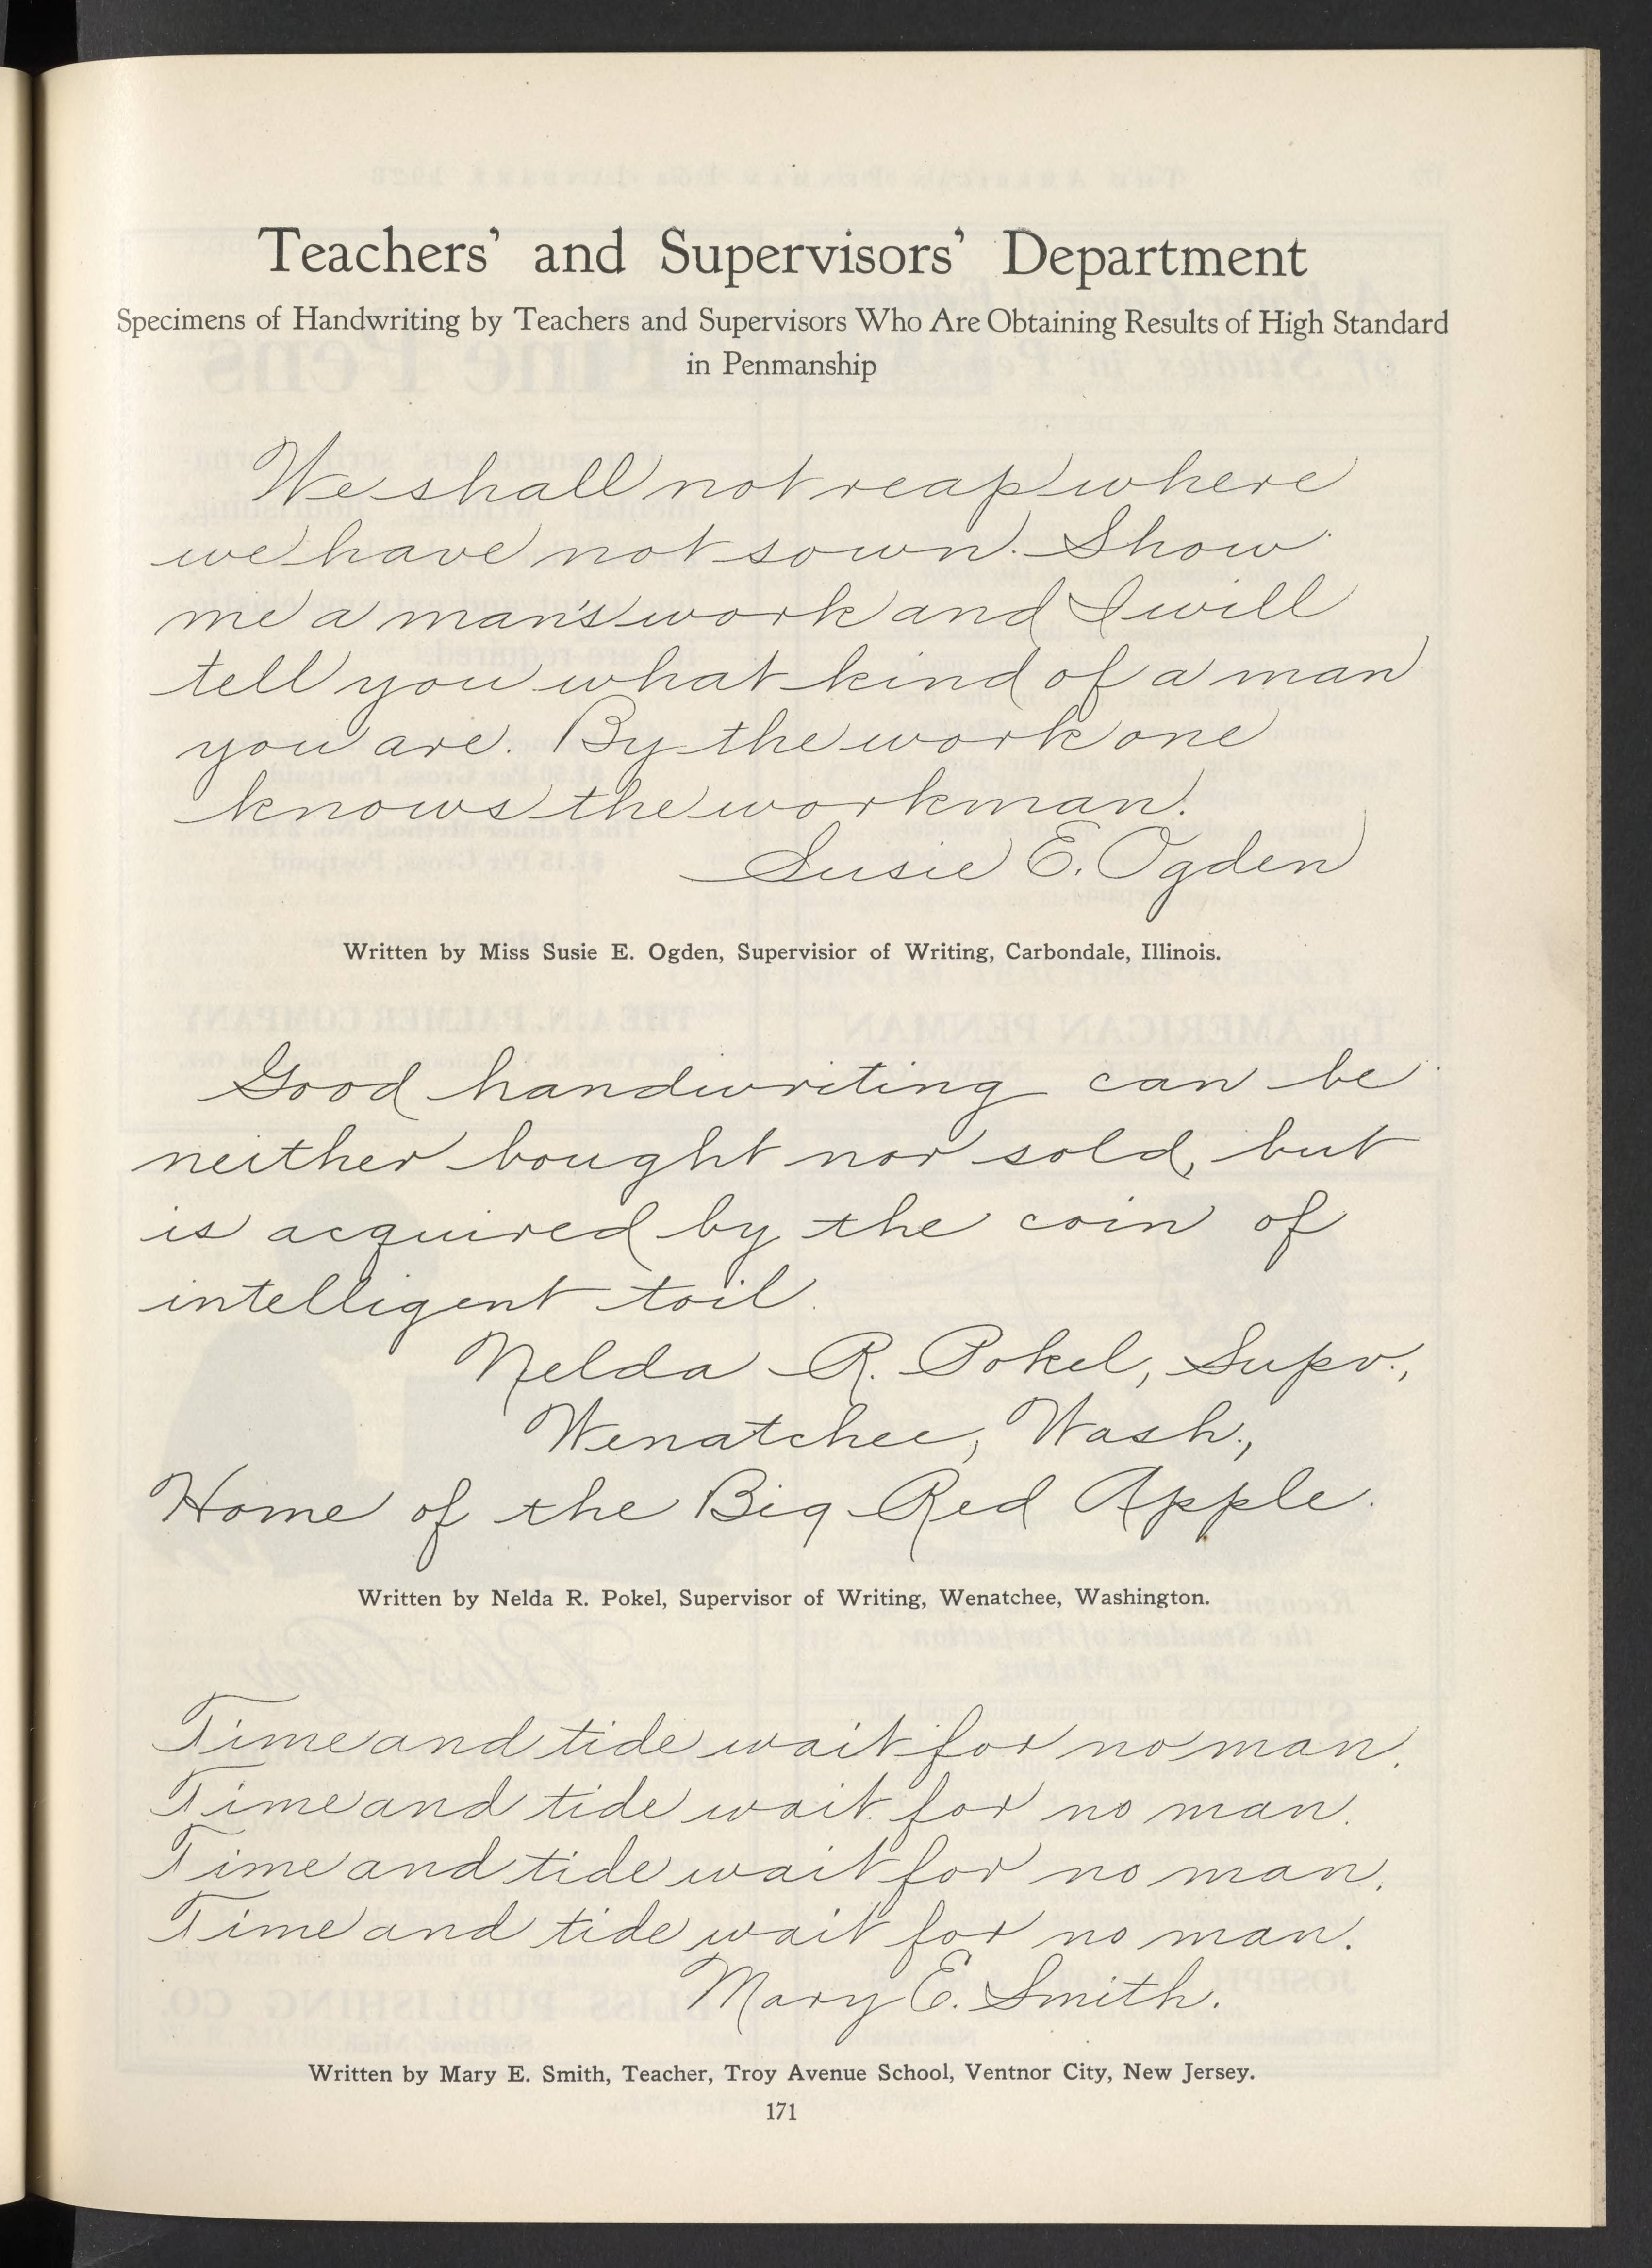 Teachers' and Supervisors' Department
Specimens of Handwriting by Teachers and Supervisors Who Are Obtaining Results of High Standard
in Penmanship
We shall not reap where
we have not sown. Show
me a man's work and I will
tell you what kind of a man
you are. By the work one
knows the workman.
Susie E. Ogden
Written by Miss Susie E. Ogden, Supervisior of Writing, Carbondale, Illinois.
Good handwriting can be
neither bought nor sold, but
is acquired by the coin of
intelligent toil.
Nelda R. Pokel, Supv.,
Wenatchee, Wash.,
Home of the Big Red Apple.
Written by Nelda R. Pokel, Supervisor of Writing, Wenatchee, Washington.
Time and tide wait for no man.
Time and tide wait for no man.
Time and tide wait for no man.
Time and tide wait for no man.
Mary E. Smith.
Written by Mary E. Smith, Teacher, Troy Avenue School, Ventnor City, New Jersey.
171